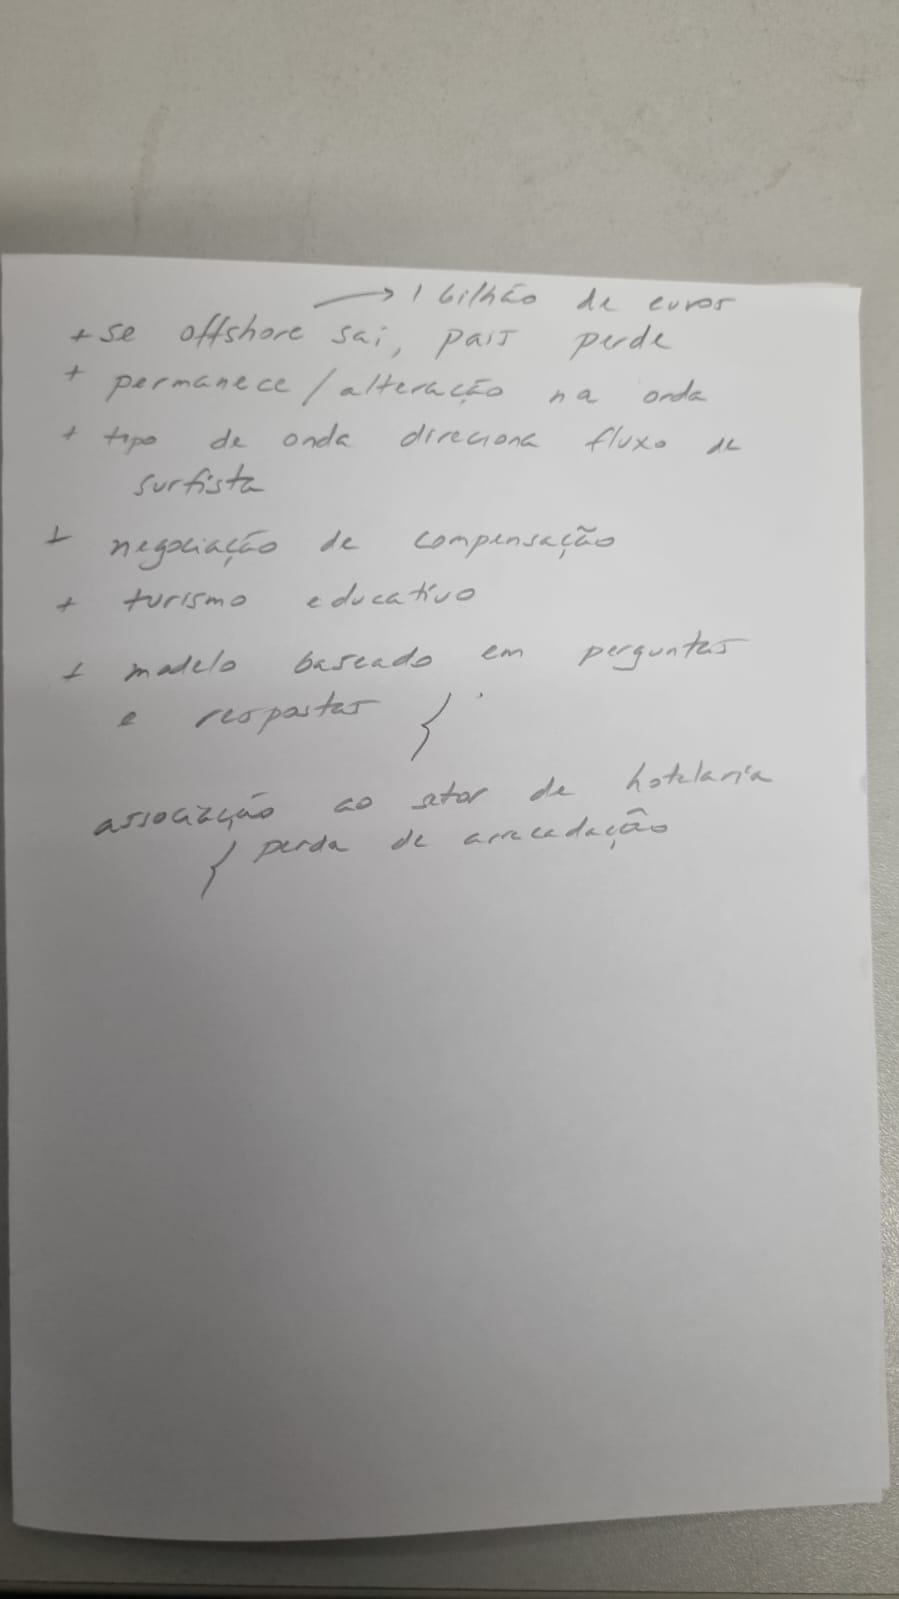 → 1 bilhão de euros
+ se offshore sai, pais perde
+ permanece / alteração na onda
+ tipo de onda direciona fluxo de
surfista
+ negociação de compensação
+ turismo educativo
+ modelo baseado em perguntas
e respostas {
associação ao setor de hotelaria
{ perda de arrecadação